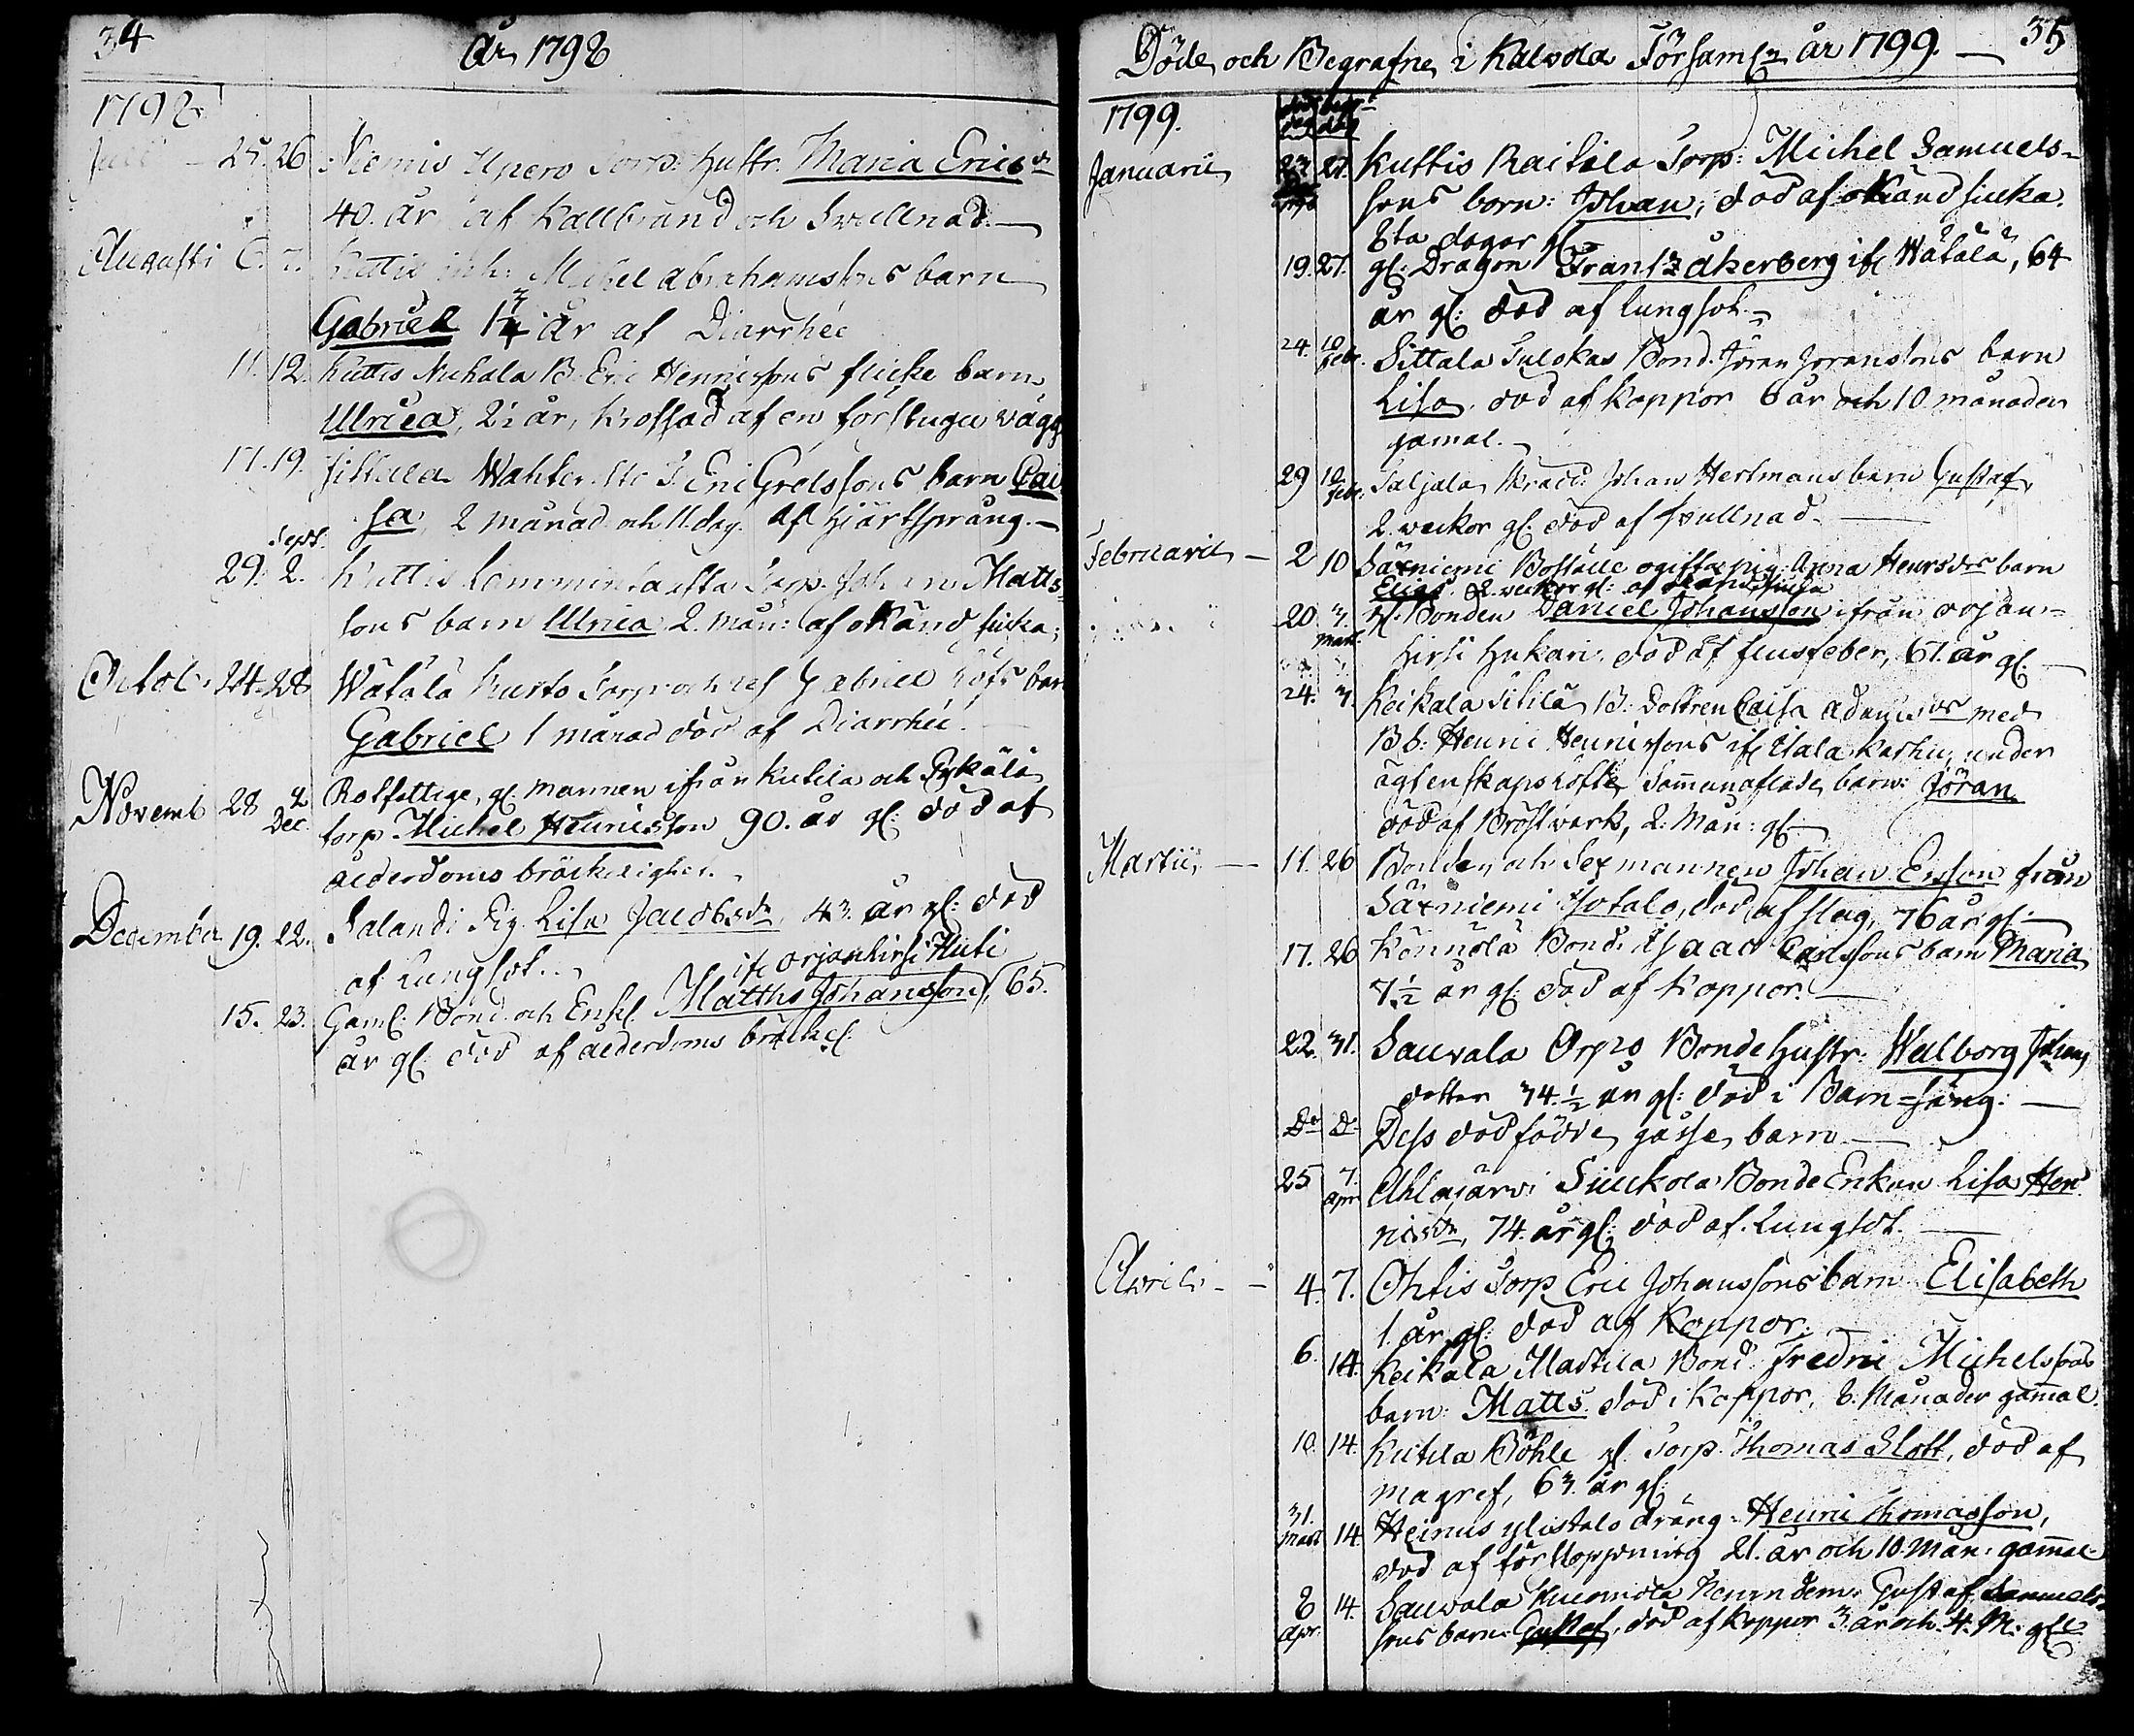 34
År 1798
1798
Juli 25. 26. Niemis Upero Torp: Hustr. Maria Ericsdr
40. år af Kallbrand och Swullnad. —
Augusti 6. 7. Kuttis inh: Michel Abrahamssons barn
Gabriel 1 3/4 år af Diarrhée
11. 12. Kuttis Nuhala B. Eric Henrissons flicke barn
Ulrica, 2 1/2 år, krossad af en forstugu vägg
17. 19. Sittala Eric Grelssons barn Cai
sa, 2 månad och 11. dag. af hjärtsprång. —
Sept.
29. 2. Kuttis Torp. Johan Matts
sons barn Ulrica 2. mån: af okänd siuka;
Octob. 24. 28 Wätälä Kurto Torp Gabriel barn
Gabriel 1 månad död af Diarrhée.
Novemb 28 2 Dec. Rotfattige, gl. mannen ifrån Kutila och Pykälä
torp. Michel Henrisson 90. år gl: död af
ålderdoms bräcklighet.
December 19. 22. Salandi Pig. Lisa Jacobsdr 43. år gl: död
af Lungsot.
ifr Orjanhirsi Huti
15. 23. Gaml: Bond. och Enkl. Matths Johansson, 65.
år gl: död af ålderdoms bräckl:
Döde och Begrafne i Kalvola Församl: år 1799. — 35
1799.
död begr
dag dag
Januarii 23 27. Kuttis Raitila Torp: Michel Samuels-
sons born: Johan; död af okänd siuka.
8ta dagar gl:
19. 27. gl: Dragon Frantz Åkerberg ifr Wätälä, 64
år gl: död af lungsot. —
24. 10 febr. Sittala Bond. Jöran Joranssons barn
Lisa, död af koppor 6 år och 10 månader
gamal. —
29 10 febr. Saljala Skrädd: Johan Hertmans barn Gustaf,
2. weckor gl: död af swullnad. —
Februarii — 2 10 Säxniemi Boställe ogifta pig: Anna Henrsdrs barn
Elias. 2. weckor gl: af okänd siuka
20. 3. Mart. gl: Bonden Daniel Johansson ifrån Orjan-
hirsi Hukari, död af flusfeber, 61. år gl: —
24. 3. Keikala Sikilä B. Dottren Caisa Adamsdr med
Bb: Henric Henrissons ifr Itala Karhu, under
ägtenskapslöfte sammanaflade barn: Jöran
död af Bröstwärk, 2. Mån: gl:
Martii, — 11. 26 Bonden och Sexmannen Johan Ersson från
Säxniemi Isotalo, död af slag, 76 år gl: —
17. 26 Könnölä Bond. Isaac Carlssons barn Maria
7 1/2 år gl: död af Koppor. —
22. 31. Sauvala Orpo Bonde Hustr: Walborg Johans
dotter 34 1/2 år gl: död i Barn-säng: —
Do Do Dess dödfödde gosse barn. —
25 7. Apr Ahlajärvi Siuckola Bonde Enkan Lisa Hen
risdr, 74. år gl: död af Lungsot. —
Aprili — 4. 7. Ohtis Torp Eric Johanssons barn Elisabeth
1. år gl: död af Koppor.
6. 14. Keikala Mattila Bond. Fredric Michelssons
barn: Matts. död i Koppor, 8. Månader gammal.
10. 14. Kutila Böhle gl. Torp. Thomas Slott, död af
magref, 63. år gl:
31. Mart 14. Heinus Ylistalo dräng Henric Thomasson,
död af förstoppning 21. år och 10. Mån: gammal
8 Apr. 14. Sauvala Gustaf Samuels-
sons barn: Gustaf, död af Koppor 3. år och 4. M. gl: